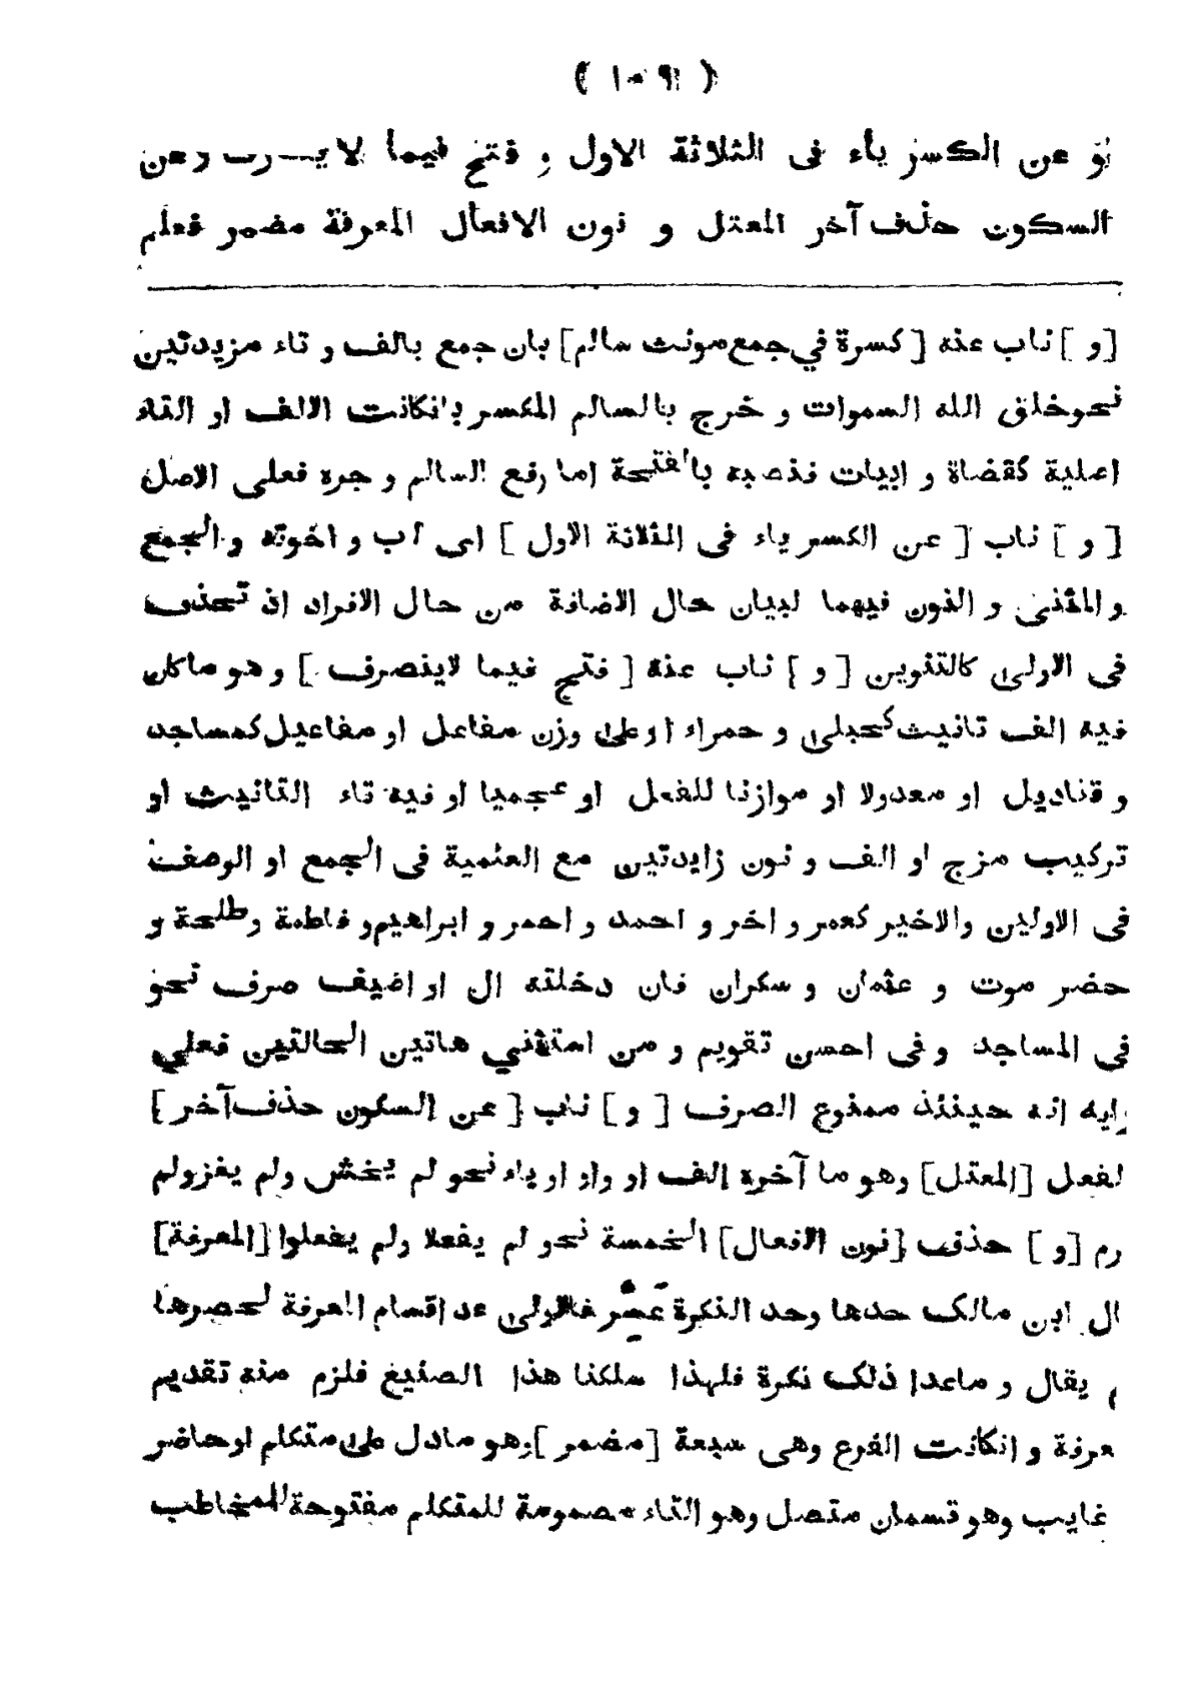 ( ١٠٩ )
و عن الكسر ياء فى الثلاثة الاول و فتح فيما لا ينصرف و عن
السكون حذف آخر المعتل و نون الافعال المعرفة مضمر فعلم
[ و ] ناب عنه [ كسرة في جمع مونث سالم ] بان جمع بالف و تاء مزيدتين
نحو خلق الله السموات و خرج بالسالم المكسر بانكانت الالف او التاء
اصلية كقضاة و ابيات فنصبه بالفتحة اما رفع السالم و جره فعلى الاصل
[ و ] ناب [ عن الكسر ياء فى الثلاثة الاول ] اى اب و اخوته و الجمع
و المثنى و النون فيهما لبيان حال الاضافة من حال الافراد اذ تحذف
فى الاولى كالتنوين [ و ] ناب عنه [ فتح فيما لاينصرف ] و هو ماكان
فيه الف تانيث كحبلى و حمراء او على وزن مفاعل او مفاعيل كمساجد
و قناديل او معدولا او موازنا للفعل او عجميا او فيه تاء التانيث او
تركيب مزج او الف و نون زايدتين مع العلمية فى الجمع او الوصف
فى الاولين والاخير كعمر و اخر و احمد و احمر و ابراهيم و فاطمة و طلحة و
حضر موت و عثمان و سكران فان دخلته ال او اضيف صرف نحو
فى المساجد و فى احسن تقويم و من استثني هاتين الحالتين فعلي
رايه انه حينئذ ممنوع الصرف [ و ] ناب [ عن السكون حذف آخر ]
لفعل [ المعتل ] وهو ما آخره الف او واو او ياء نحو لم يخش ولم يغزولم
رم [ و ] حذف [ نون الافعال ] الخمسة نحو لم يفعلا ولم يفعلوا [ المعرفة ]
ال ابن مالك حدها وحد النكرة عسر فالاولى عد اقسام المعرفة لحصرها
م يقال و ماعدا ذلك نكرة فلهذا سلكنا هذا الصنيع فلزم منه تقديم
عرفة و انكانت الفرع وهى سبعة [ مضمر ] وهو مادل على متكلم او حاضر
غايب وهو قسمان متصل وهو التاء مضمومة للمتكلم مفتوحة للمخاطب